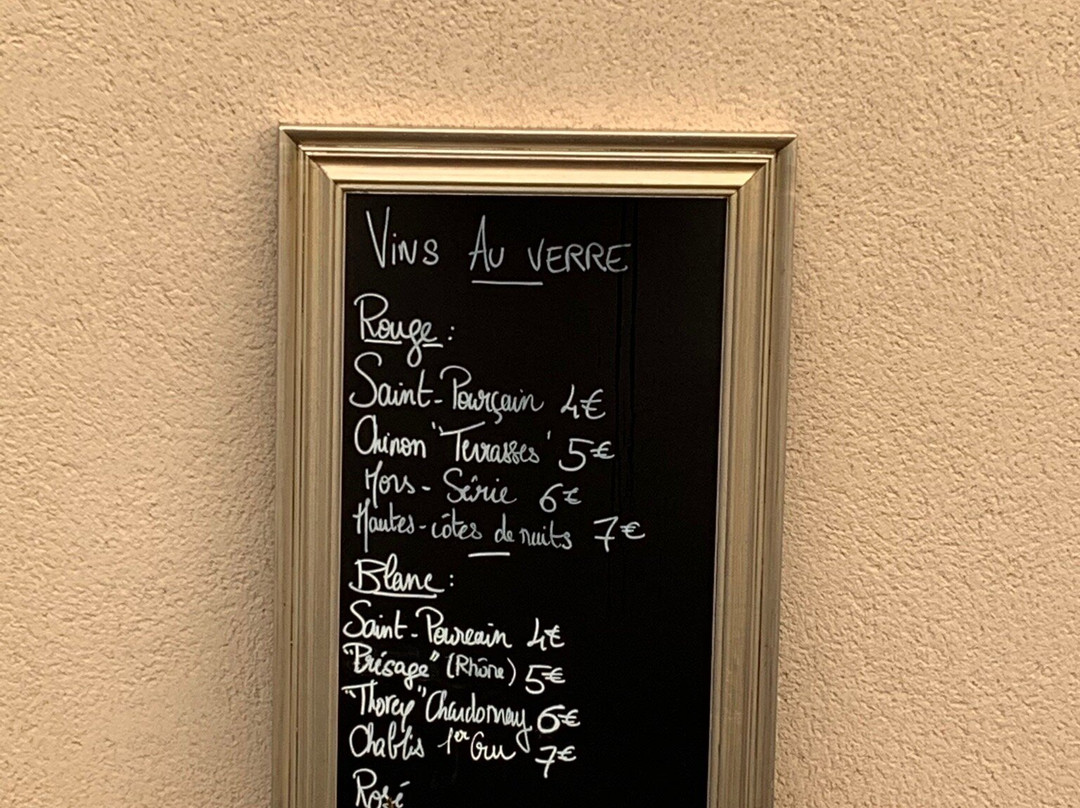 Vins Au VERRE
Rouge :
Saint-Pourçain 4€
Chinon "Terrasses" 5€
Hors-Série 6€
Hautes-côtes de nuits 7€
Blanc :
Saint-Pourcain 4€
"Présage" (Rhône) 5€
"Thorey" Chardonnay 6€
Chablis 1er Cru 7€
Rosé